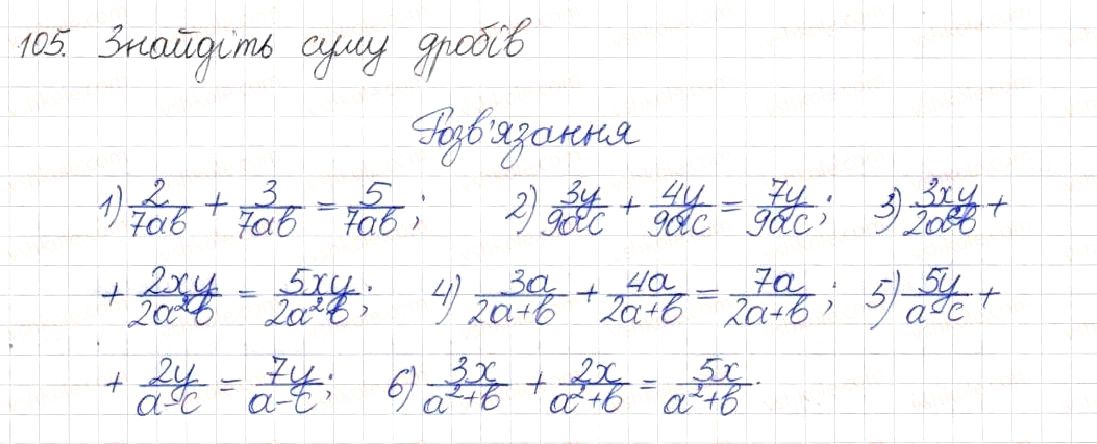 105. Знайдіть суму дробів
Розв'язання
1) 2/7ab + 3/7ab = 5/7ab; 2) 3y/9ac + 4y/9ac = 7y/9ac; 3) 3xy/2a²b +
+ 2xy/2a²b = 5xy/2a²b; 4) 3a/2a+b + 4a/2a+b = 7a/2a+b; 5) 5y/a-c +
+ 2y/a-c = 7y/a-c; 6) 3x/a²+b + 2x/a²+b = 5x/a²+b.